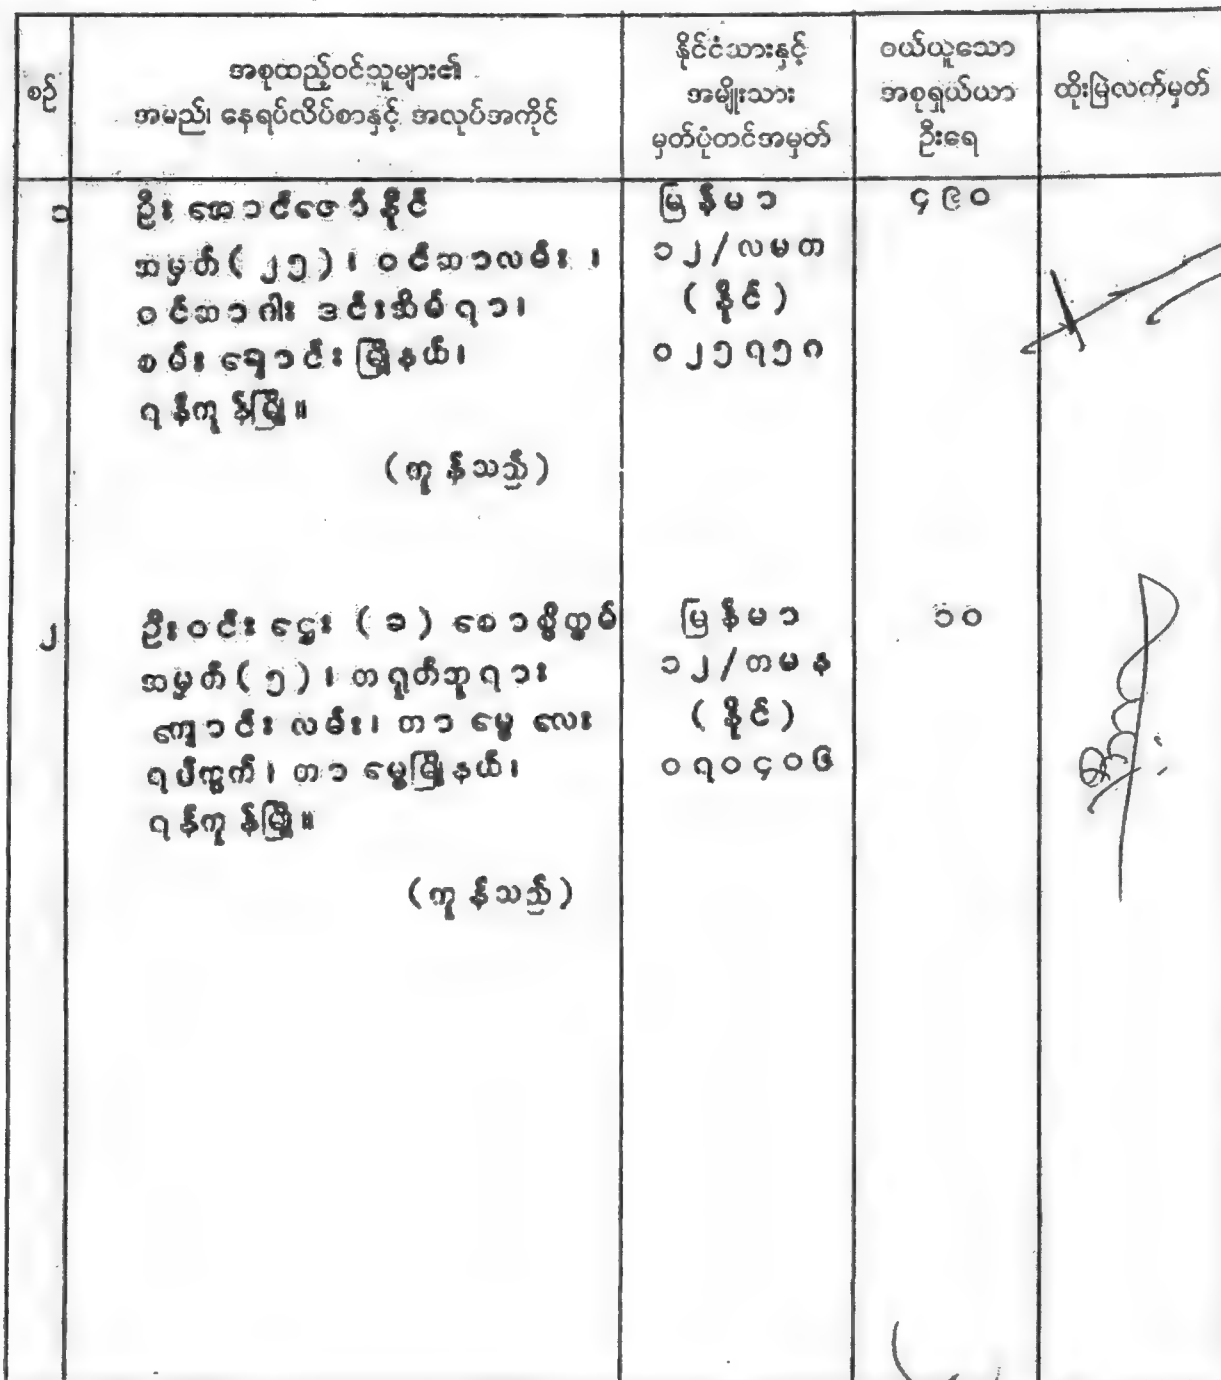 စဉ်
အစုထည့်ဝင်သူများ၏
အမည်၊ နေရပ်လိပ်စာနှင့် အလုပ်အကိုင်
နိုင်ငံသားနှင့်
အမျိုးသား
မှတ်ပုံတင်အမှတ်
ဝယ်ယူသော
အစုရှယ်ယာ
ဦးရေ
ထိုးမြဲလက်မှတ်
၁
ဦးအောင်ဇော်နိုင်
အမှတ်(၂၅)၊ ဝင်ဆာလမ်း၊
ဝင်ဆာဂါးဒင်းအိမ်ရာ၊
စမ်းချောင်းမြို့နယ်၊
ရန်ကုန်မြို့။
(ကုန်သည်)
မြန်မာ
၁၂/လမတ
(နိုင်)
၀၂၅၇၅၈
၄၉၀
၂
ဦးဝင်းငွေး (ခ) စောစွိထွမ်
အမှတ်(၅)၊ တရုတ်ဘုရား
ကျောင်းလမ်း၊ တာမွေလေး
ရပ်ကွက်၊ တာမွေမြို့နယ်၊
ရန်ကုန်မြို့။
(ကုန်သည်)
မြန်မာ
၁၂/တမန
(နိုင်)
၀၇၀၄၀၆
၁၀